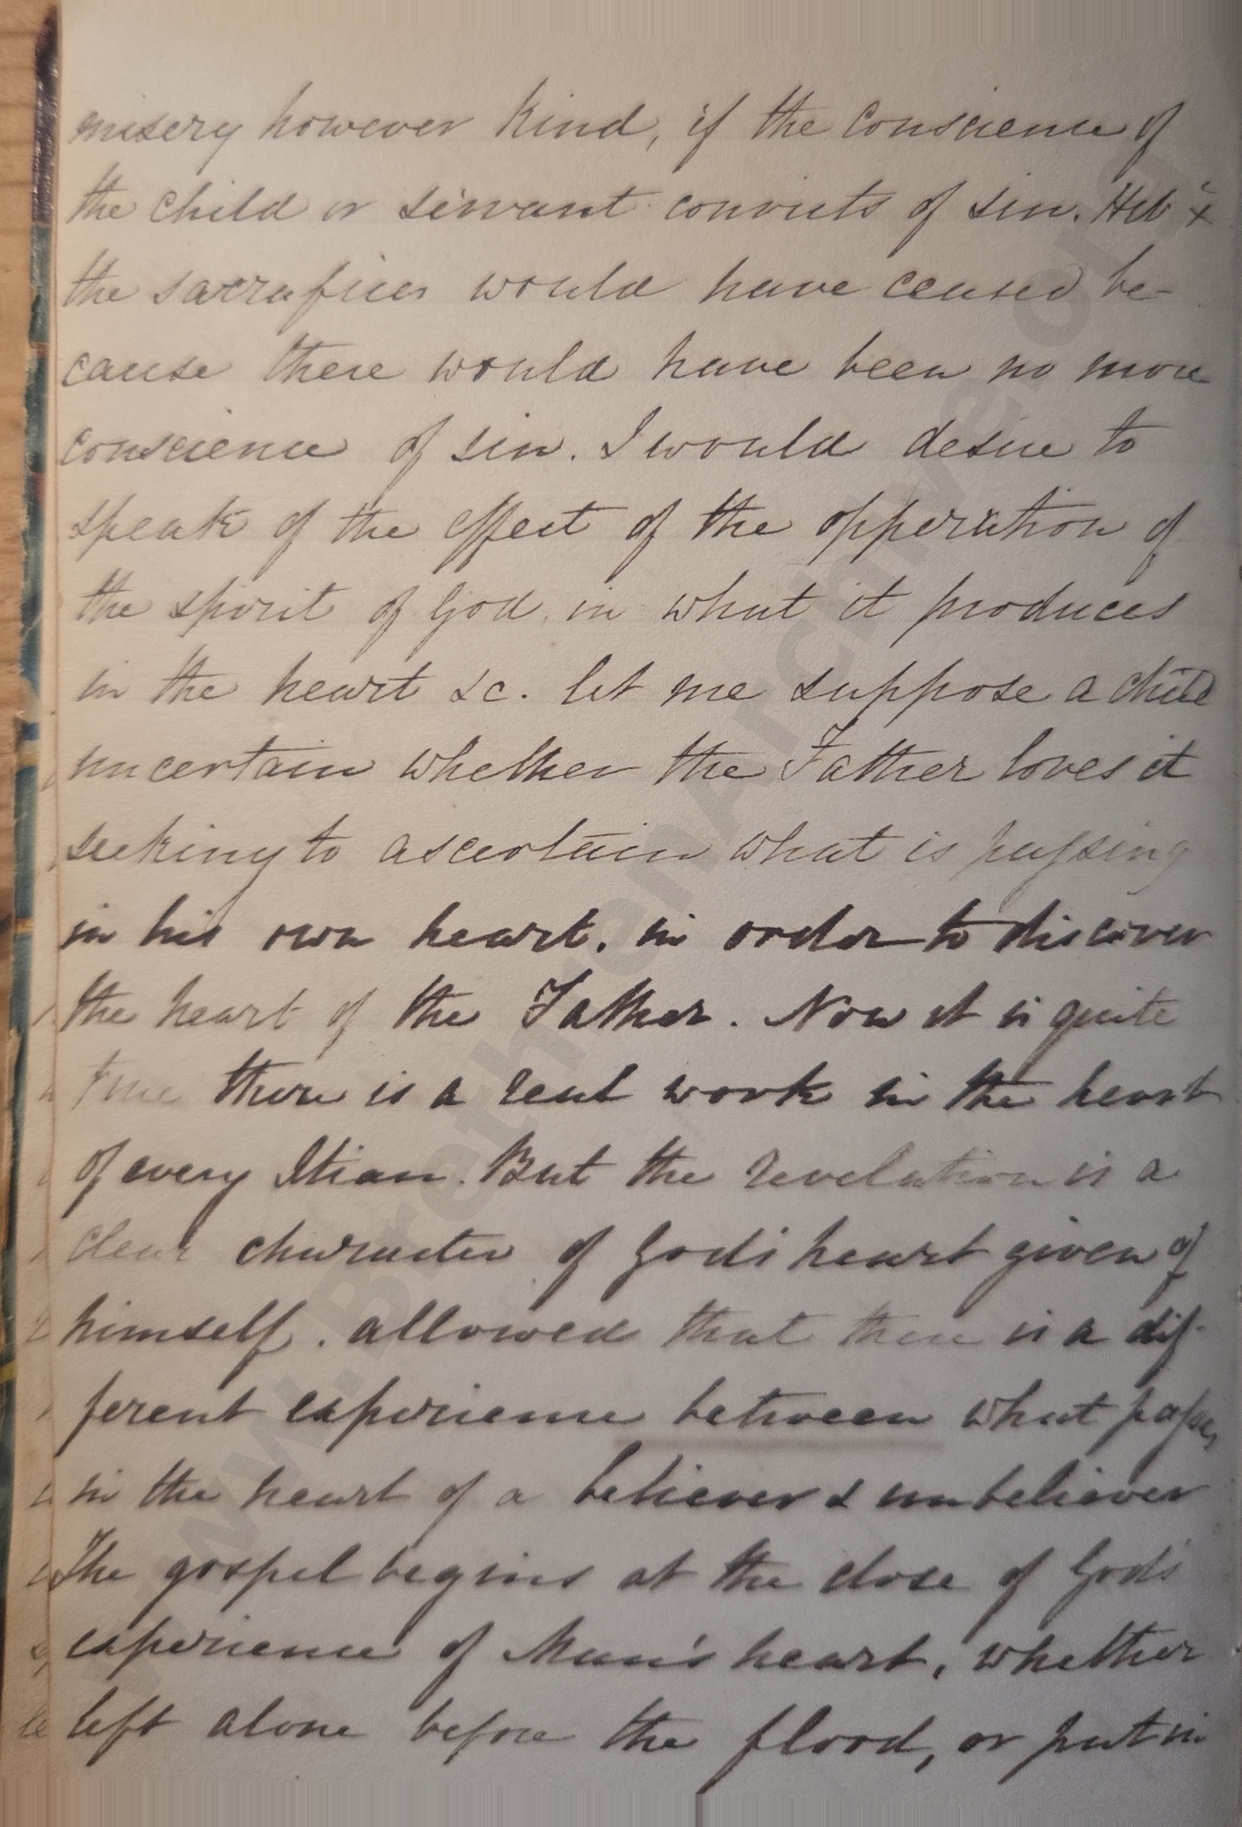 misery however kind, if the conscience of
the child or servant convicts of sin. Heb x
the sacrafices would have ceased be-
cause there would have been no more
conscience of sin. I would desire to
speak of the effect of the opperation of
the spirit of God in what it produces
in the heart &c. let me suppose a child
uncertain whether the Father loves it
seeking to ascertain what is passing
in his own heart. in order to discover
the heart of the Father. Now it is quite
true there is a real work in the heart
of every Xtian. But the revelation is a
clear character of Gods heart given of
himself. allowed that there is a dif-
ferent experience between what passes
in the heart of a believer & unbeliever
The gospel begins at the close of God's
experience of Man's heart, whether
left alone before the flood, or put in
www.BrethrenArchive.org